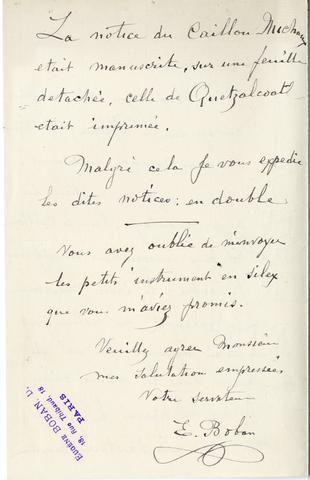 La notice du Caillou Michaux
etait manuscrite, sur une feuille
detachée, celle de Quetzalcoatl
etait imprimée.
Malgré cela Je vous expedie
les dites notices: en double
Vous avez oublié de m'envoyer
les petits "instrument" en silex
que vous m'aviez promis.
Veuillez agreer Monsieur
mes salutation empressées
Votre serviteur
E. Boban
EUGENE BOBAN
18, Rue Thibaud, 18
PARIS